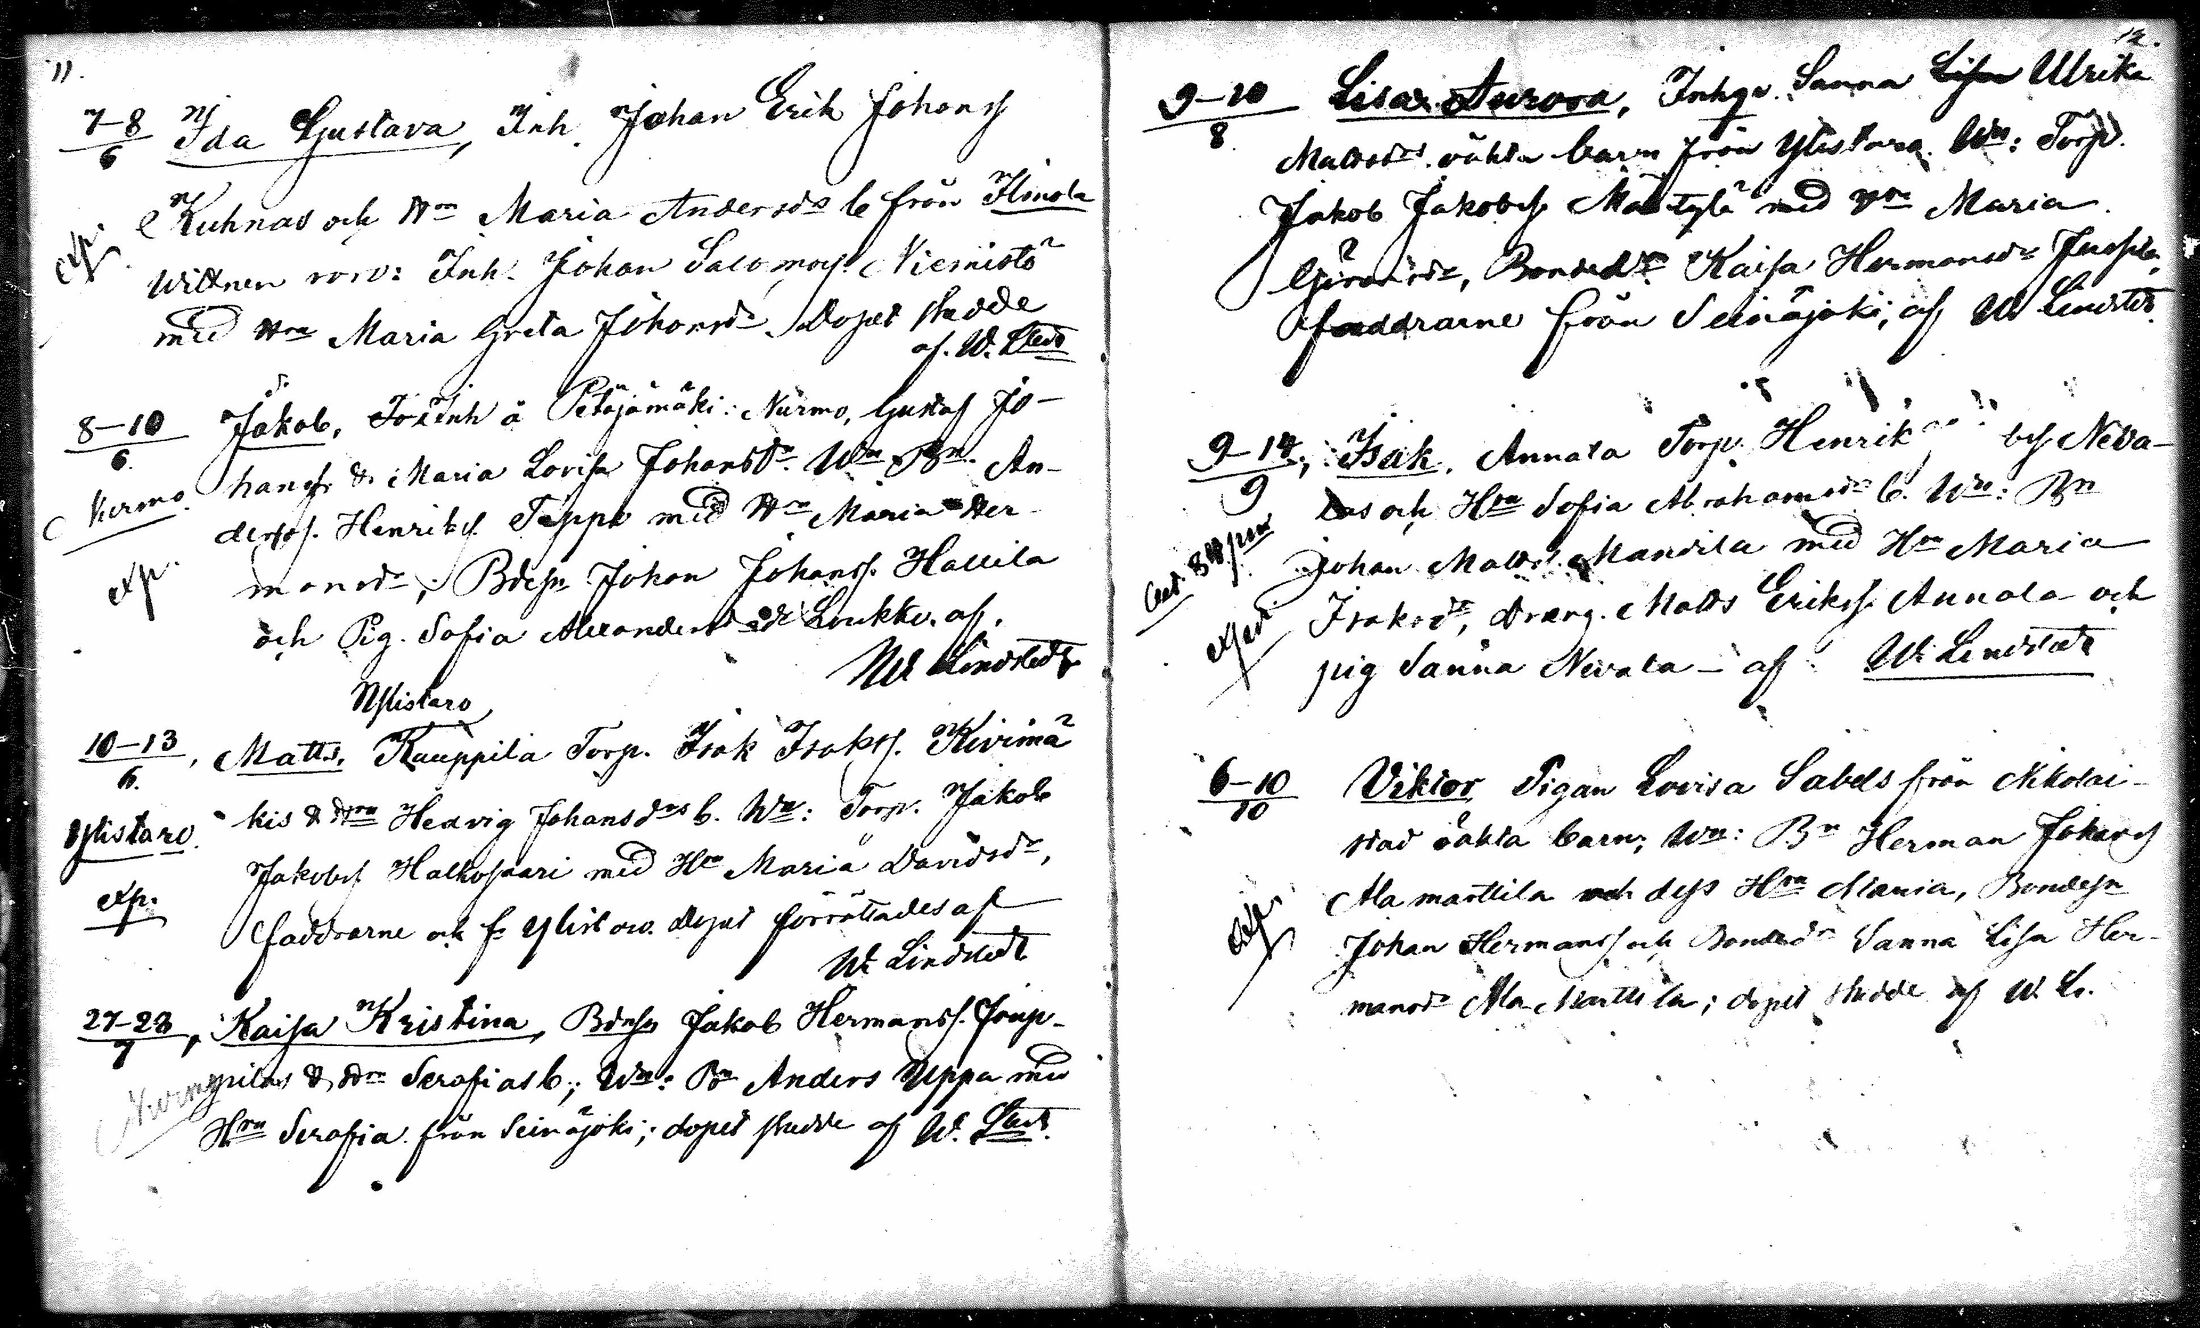 11.
7–8
6
Ida Gustava, Inh. Johan Erik Johanss
Kuhnas och Hru Maria Andersdr b från Ilmola
exp.
Wittnen voro: Inh. Johan Salomonss. Niemistö
med Hru Maria Greta Johansdr. Dopet skedde
af. W. Lstedt
8–10
6.
Jakob, Inh å Petäjämäki. Nurmo, Gustaf Jo-
hanss & Maria Lovisa Johansdr. Wn Bn. An-
Nurmo.
derss. Henriks Teppo med Hru Maria Her-
mansdr, Bdesn Johan Johanss. Hallila
exp.
och Pig. Sofia Alexandersdr Loukko. af.
W Lindstedt
Ylistaro
10–13
6.
Matts, Kauppila Torp. Isak Isakss. Kivimä
kis & Hru Hedvig Johansdrs b. Wn: Torp. Jakob
Ylistaro.
Jakobss Halkosaari med Hru Maria Davidsdr,
exp.
faddrarne ock fr Ylistaro. Dopet förrättades af
W. Lindstedt
27–28
7
Kaisa Kristina, Bdesn Jakob Hermanss. Joup-
pilas & Hru Serafias b.; Wn: Bn Anders Uppa med
Nurmo
Hru Serafia från Seinäjoki; dopet skedde af W. Lstedt.
12.
9–10
8.
Lisa Aurora, Inhqv. Sanna Lisa Ulrika
Mattsdrs oäkta barn från Ylistaro. Wn: Torp.
Jakob Jakobss Mäntylä med Hru Maria
Göransdr, Bondedr Kaisa Hermansdr Jouppila,
faddrarne från Seinäjoki, af W Lindstedt.
9–14
9
Isak, Annala Torp. Henrik bss Neva-
las och Hru Sofia Abrahamsdr b. Wn: Bn
Johan Matts. Mandila med Hru Maria
Isaksdr, dräng. Matts Erikss. Annala och
pig Sanna Nevala – af W. Lindstedt
6–10
10
Viktor Pigan Lovisa Sabels från Nikolai-
stad oäkta barn; Wn: Bn Herman Johanss
Ala marttila och dess Hru Maria, Bondesn
exp.
Johan Hermanss och Bondedr Sanna Lisa Her-
mansdr Ala-Marttila; dopet skedde af W. L.